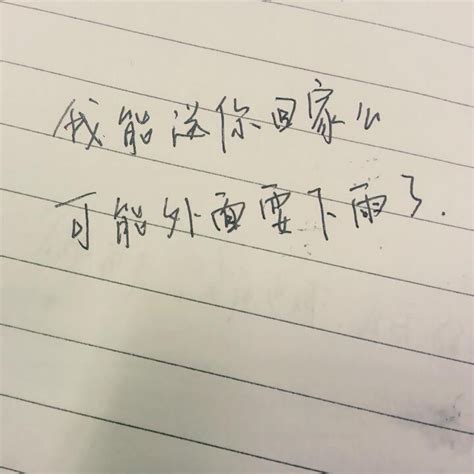 我能送你回家么
可能外面要下雨了.